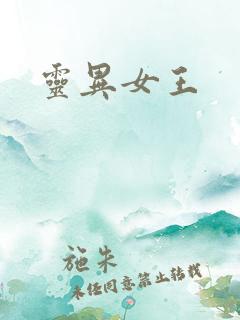 靈異女王
施朱
未经同意禁止转载